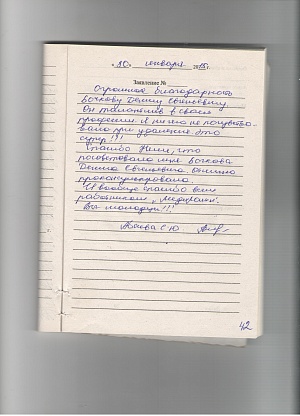 « 10 » января 2015 г.
Заявление №
Огромная благодарность
Бочкову Денису Евгеньевичу.
Он талантлив в своей
профессии. Я ничего не почувство-
вала при удалении. Это
супер!!!
Спасибо Нине, что
посоветовала мне Бочкова
Дениса Евгеньевича. Отлично
проконсультировала.
И вообще спасибо всем
работникам „Медгарант".
Все молодцы!!!
С.Ю.
42